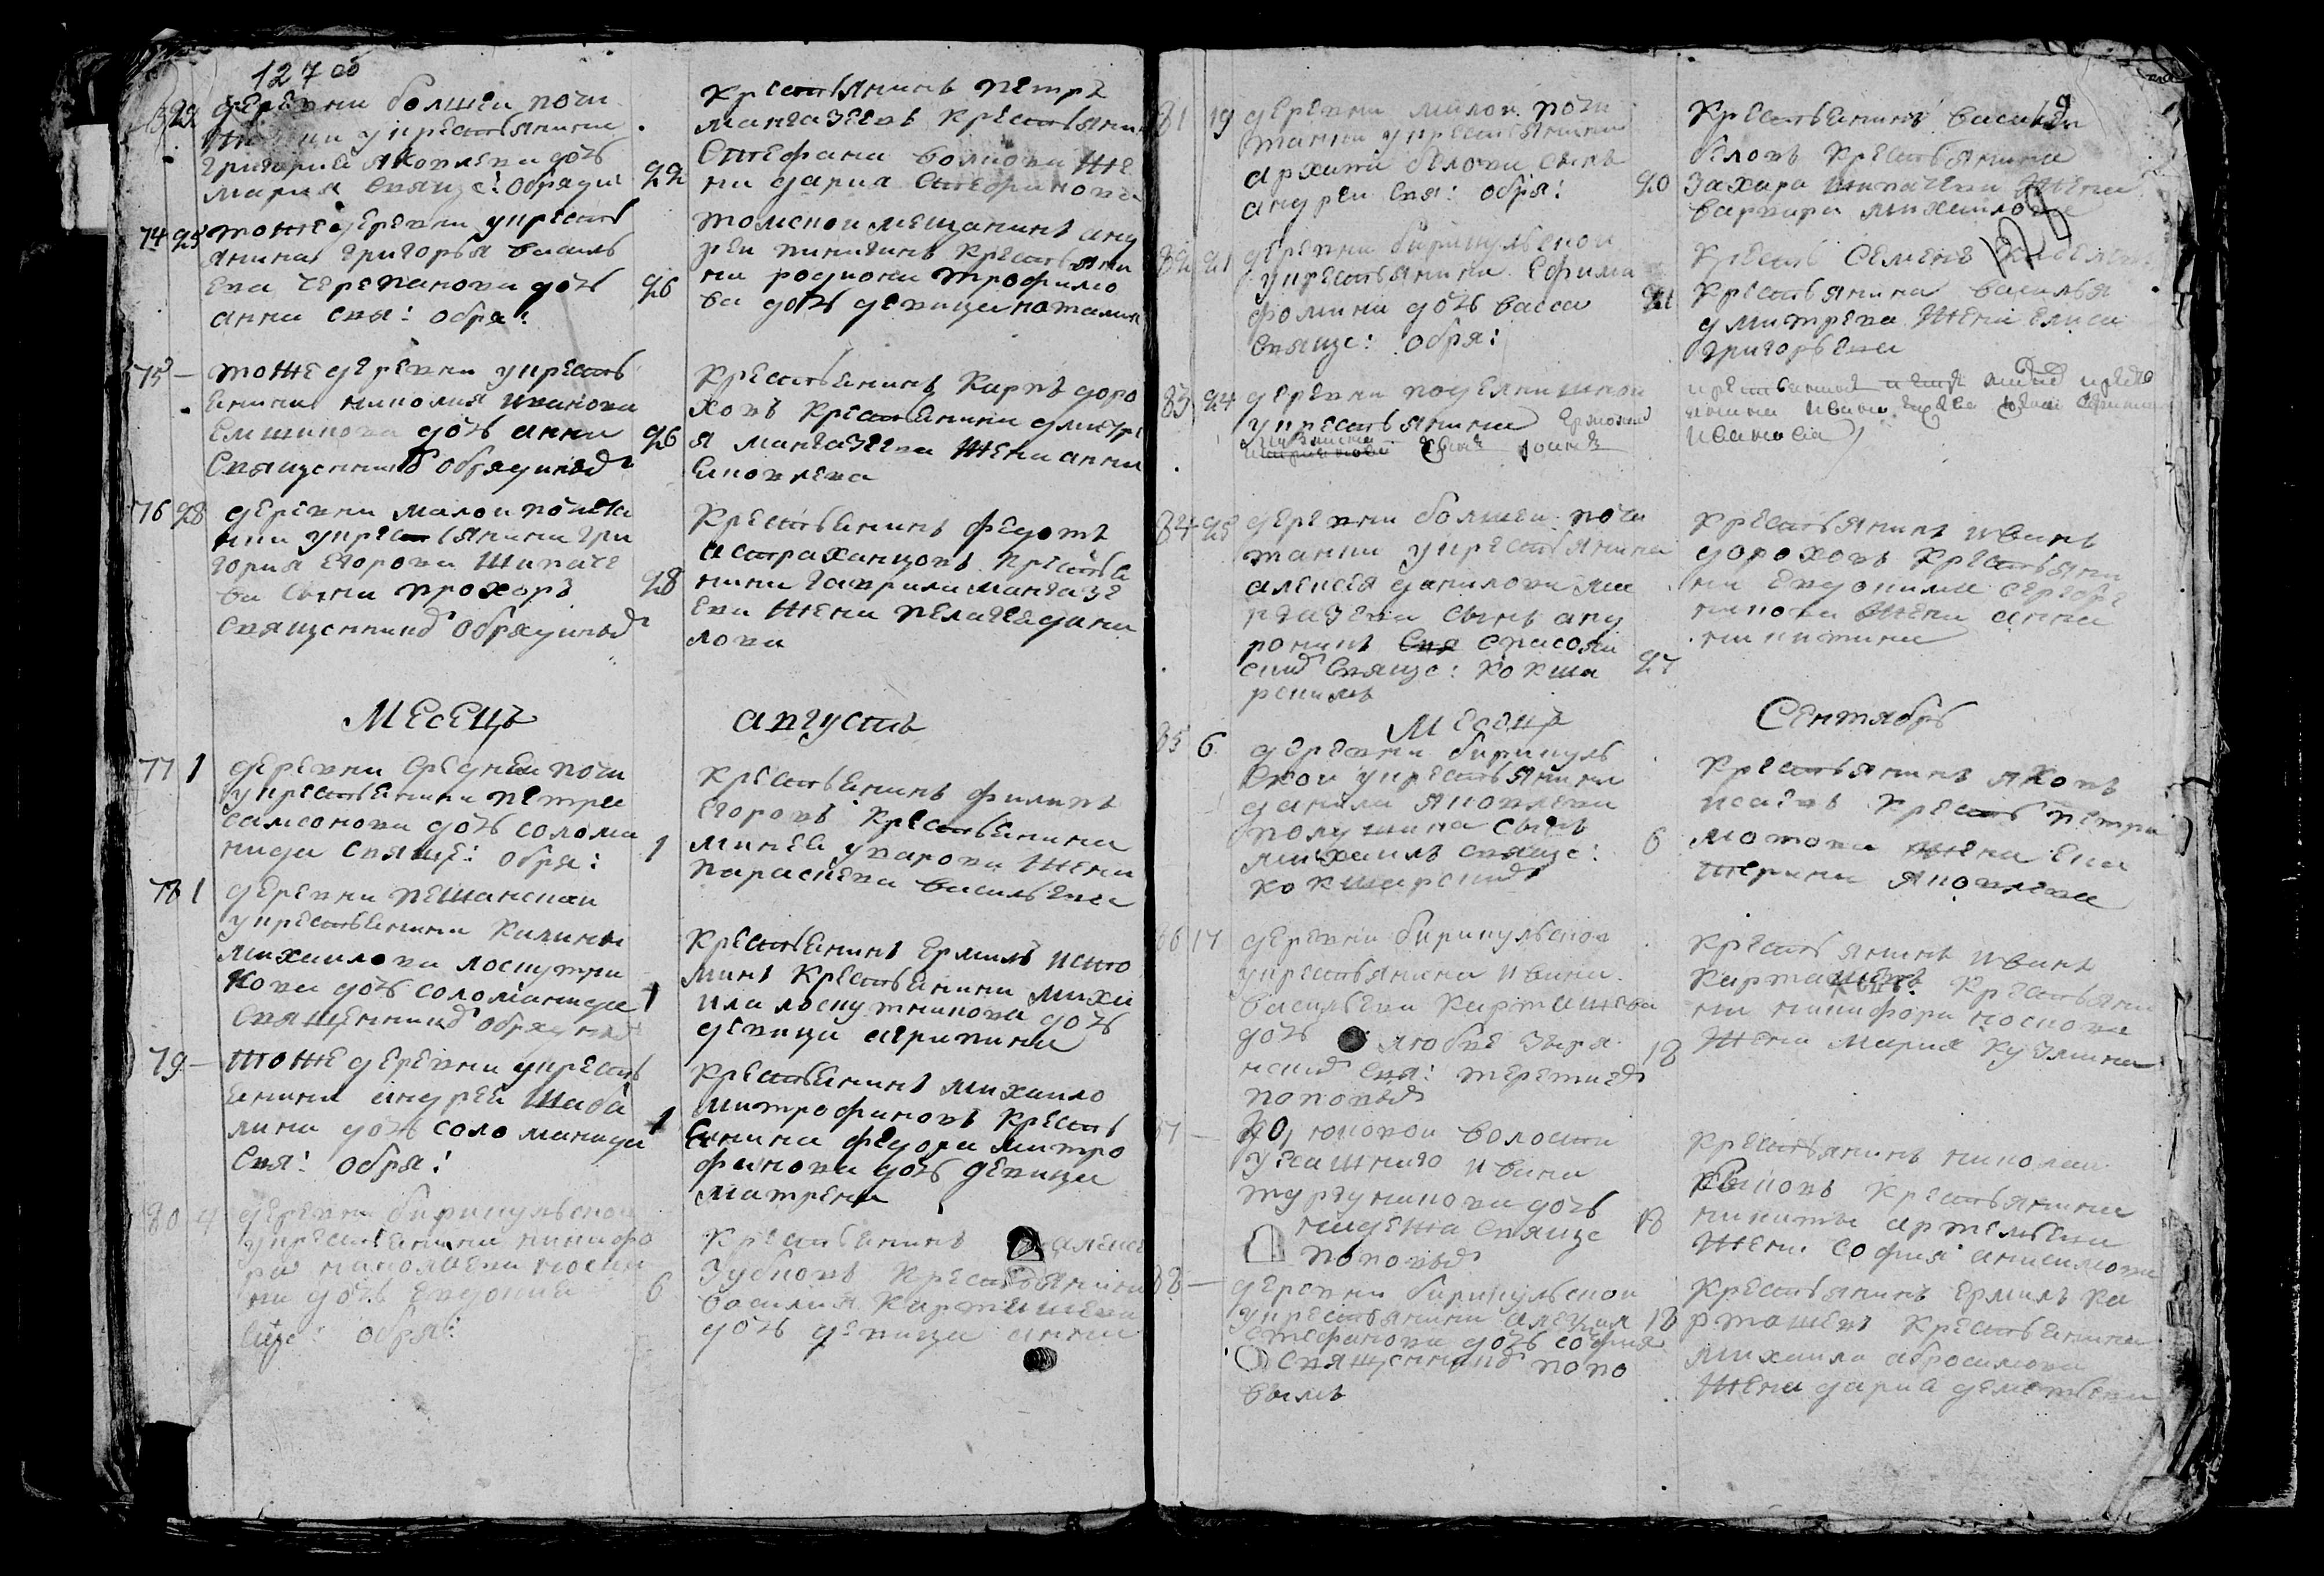 127 об
22
деревни болшей почи
танки у крестьянина
григорья яковлева дочь
мария свяще: обряди:
22
крестьянинъ петръ
мангазеевъ крестьянин
стефана волкова же
ны дария стефанова
74 25
тоже деревни у кресть
янина григорья василь
ева черепанова дочь
анна свя: обря:
26
томской мещанинъ анд
рей никитинъ крестьяни
на родиона трофимо
ва дочь девица наталия
75 —
тоже деревни у кресть
енина николая иванова
дочь анна
священникъ обрядиновъ
26
крестьенинъ карпъ доро
ховъ крестьенина дмитри
я мангазеева жена анна
яковлева
76 28
деревни малой почита
нки у крестьянина гри
гория егорова шипаче
ва сынъ прохоръ
священникъ обрядиновъ
28
крестьенинъ федотъ
астраханцовъ крестье
нина гаврила мангазе
ева жена пелагея дани
лова
месецъ августъ
77 1
деревни средней почи
у крестьенина петра
самсонова дочь солома
нида свяще: обря:
1
крестьенинъ филипъ
егоровъ крестьенина
минея уварова жена
параскева васильева
78 1
деревни песчанской
у крестьенина калины
михаилова лоскутни
кова дочь соломанида
священникъ обрядинов
1
крестьенинъ ермилъ исто
минъ крестьенина миха
ила лоскутникова дочь
девица агрипина
79 —
тоже деревни у кресть
енина андрея шаба
лина дочь соломанида
свя: обря:
1
крестьенинъ михаило
митрофановъ кресть
енина федора митро
фанова дочь девица
матрена
80 4
деревни бирикульской
у крестьенина никифо
ра николаева носко
ва дочь евдокия
свще: обря:
6
крестьенинъ алексе
зубковъ крестьянина
василия карташева
дочь девица анна
81 19
деревни малой почи
танки у крестьянина
архипа белова сынъ
андрей свя: обря:
20
крестьенинъ василей
беловъ крестьянина
захара шипачева жена
варвара михаилова
128
82 21
деревни бирикульской
у крестьянина ефима
фомина дочь васса
свяще: обря:
21
кресть семенъ
крестьянина василья
дмитрева жена елиса
григорьева
83 24
деревни подъелнишной
у крестьянина ермолая
сынъ иоанъ
ивана
иванова
84 25
деревни болшей почи
танки у крестьянина
алексея данилова ма
нгазеева сынъ анд
роникъ спасояй
ский свяще: кокша
рскимъ
27
крестьянинъ иванъ
дороховъ крестьяни
на евдокима сергее
никова жена анна
никитина
месецъ сентябрь
85 6
деревни бирикуль
ской у крестьянина
данила яковлева
полушина сынъ
михаилъ свяще:
кокшарский
6
крестьянинъ яковъ
исаевъ кресть петра
мотова жена ека
терина яковлева
86 17
деревни бирикульской
у крестьянина ивана
васильева карташева
дочь любве зыря
нский свя: терентий
поповъ
18
крестьянинъ иванъ
карташевъ крестьяни
на никифора носкова
жена мария кузмина
87 —
волости
ясашнаго ивана
тургунакова дочь
надежа свяще
поповъ
18
крестьянинъ николаи
быковъ крестьянина
никиты артельева
жена софия анисимова
88 —
деревни бирикульской
у крестьянина алексея
стефанова дочь софия
священникъ попо
вымъ
18
крестьянинъ ермилъ ка
рташевъ крестьенина
михаила абросимова
жена дария деметьева